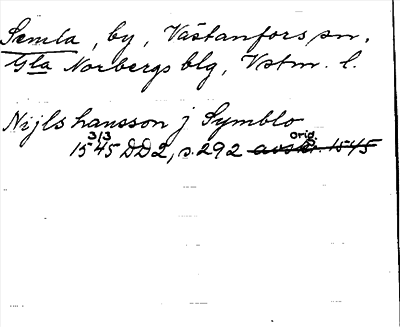 Semla, by, Västanfors sn,
Gla Norbergs blg, Vstm. l.
Nijls hansson j Symblo
1545 3/3 DD2, s. 292 Orig. avskr. 1545